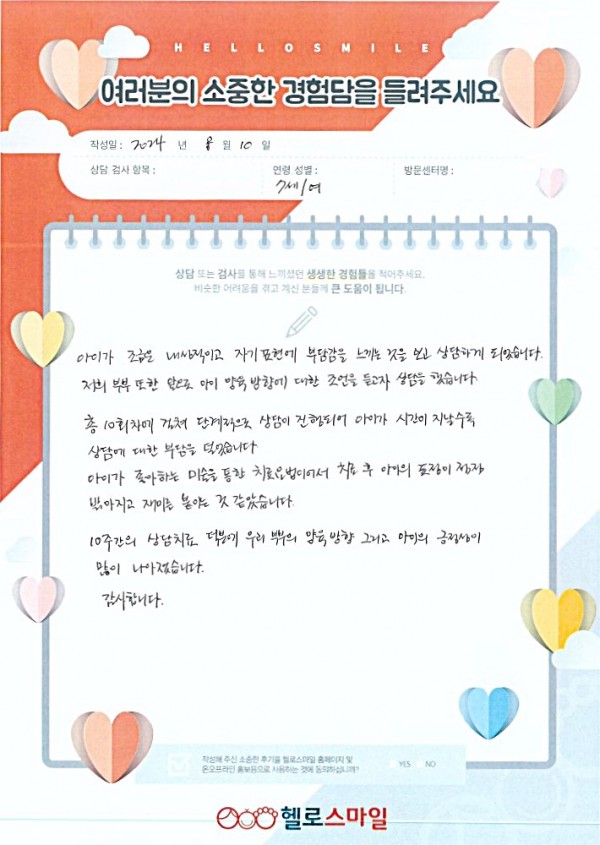 HELLOSMILE
여러분의 소중한 경험담을 들려주세요
작성일 : 2024 년 8 월 10 일
상담 검사 항목 : 연령 성별 : 방문센터명 :
7세/여
상담 또는 검사를 통해 느끼셨던 생생한 경험들을 적어주세요.
비슷한 어려움을 겪고 계신 분들께 큰 도움이 됩니다.
아이가 조금은 내성적이고 자기표현에 부담감을 느끼는 것을 보고 상담하게 되었습니다.
저희 부부 또한 앞으로 아이 양육방향에 대한 조언을 듣고자 상담을 했습니다.
총 10회차에 걸쳐 단계적으로 상담이 진행되어 아이가 시간이 지날수록
상담에 대한 부담을 덜었습니다
아이가 좋아하는 미술을 통한 치료요법이어서 치료 후 아이의 표정이 점점
밝아지고 재미를 붙이는 것 같았습니다.
10주간의 상담치료 덕분에 우리 부부의 양육방향 그리고 아이의 긍정성이
많이 나아졌습니다.
감사합니다.
작성해 주신 소중한 후기를 헬로스마일 홈페이지 및
온오프라인 홍보용으로 사용하는 것에 동의하십니까?
YES NO
헬로스마일